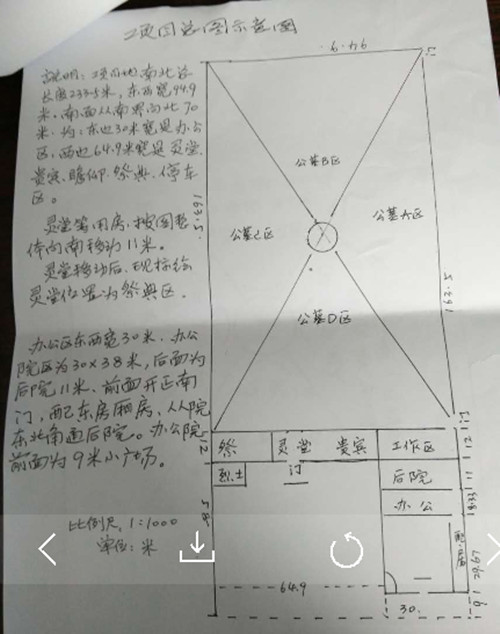 项目总图示意图
说明：项目地南北总
长度233.5米，东西宽94.9
米，南面从南界向北70
米，均：东边30米宽是办公
区，西边64.9米宽是灵堂.
贵宾、瞻仰、祭典、停车
区。
灵堂等用房，按图整
体向南移动11米。
灵堂移动后，现标绘
灵堂位置为祭典区.
办公区东西宽30米、办公
院区为30×38米，后面为
后院11米、前面开正南
门，配东房厢房、从院
东北角通后院。办公院
前面为9米小广场。
比例尺，1:1000
单位：米
94.9
163.5
公墓B区
公墓C区
公墓A区
公墓D区
162.5
祭
灵堂
贵宾
工作区
门
12
12
烈士
门
后院
11
办公
58.5
64.9
30.
9